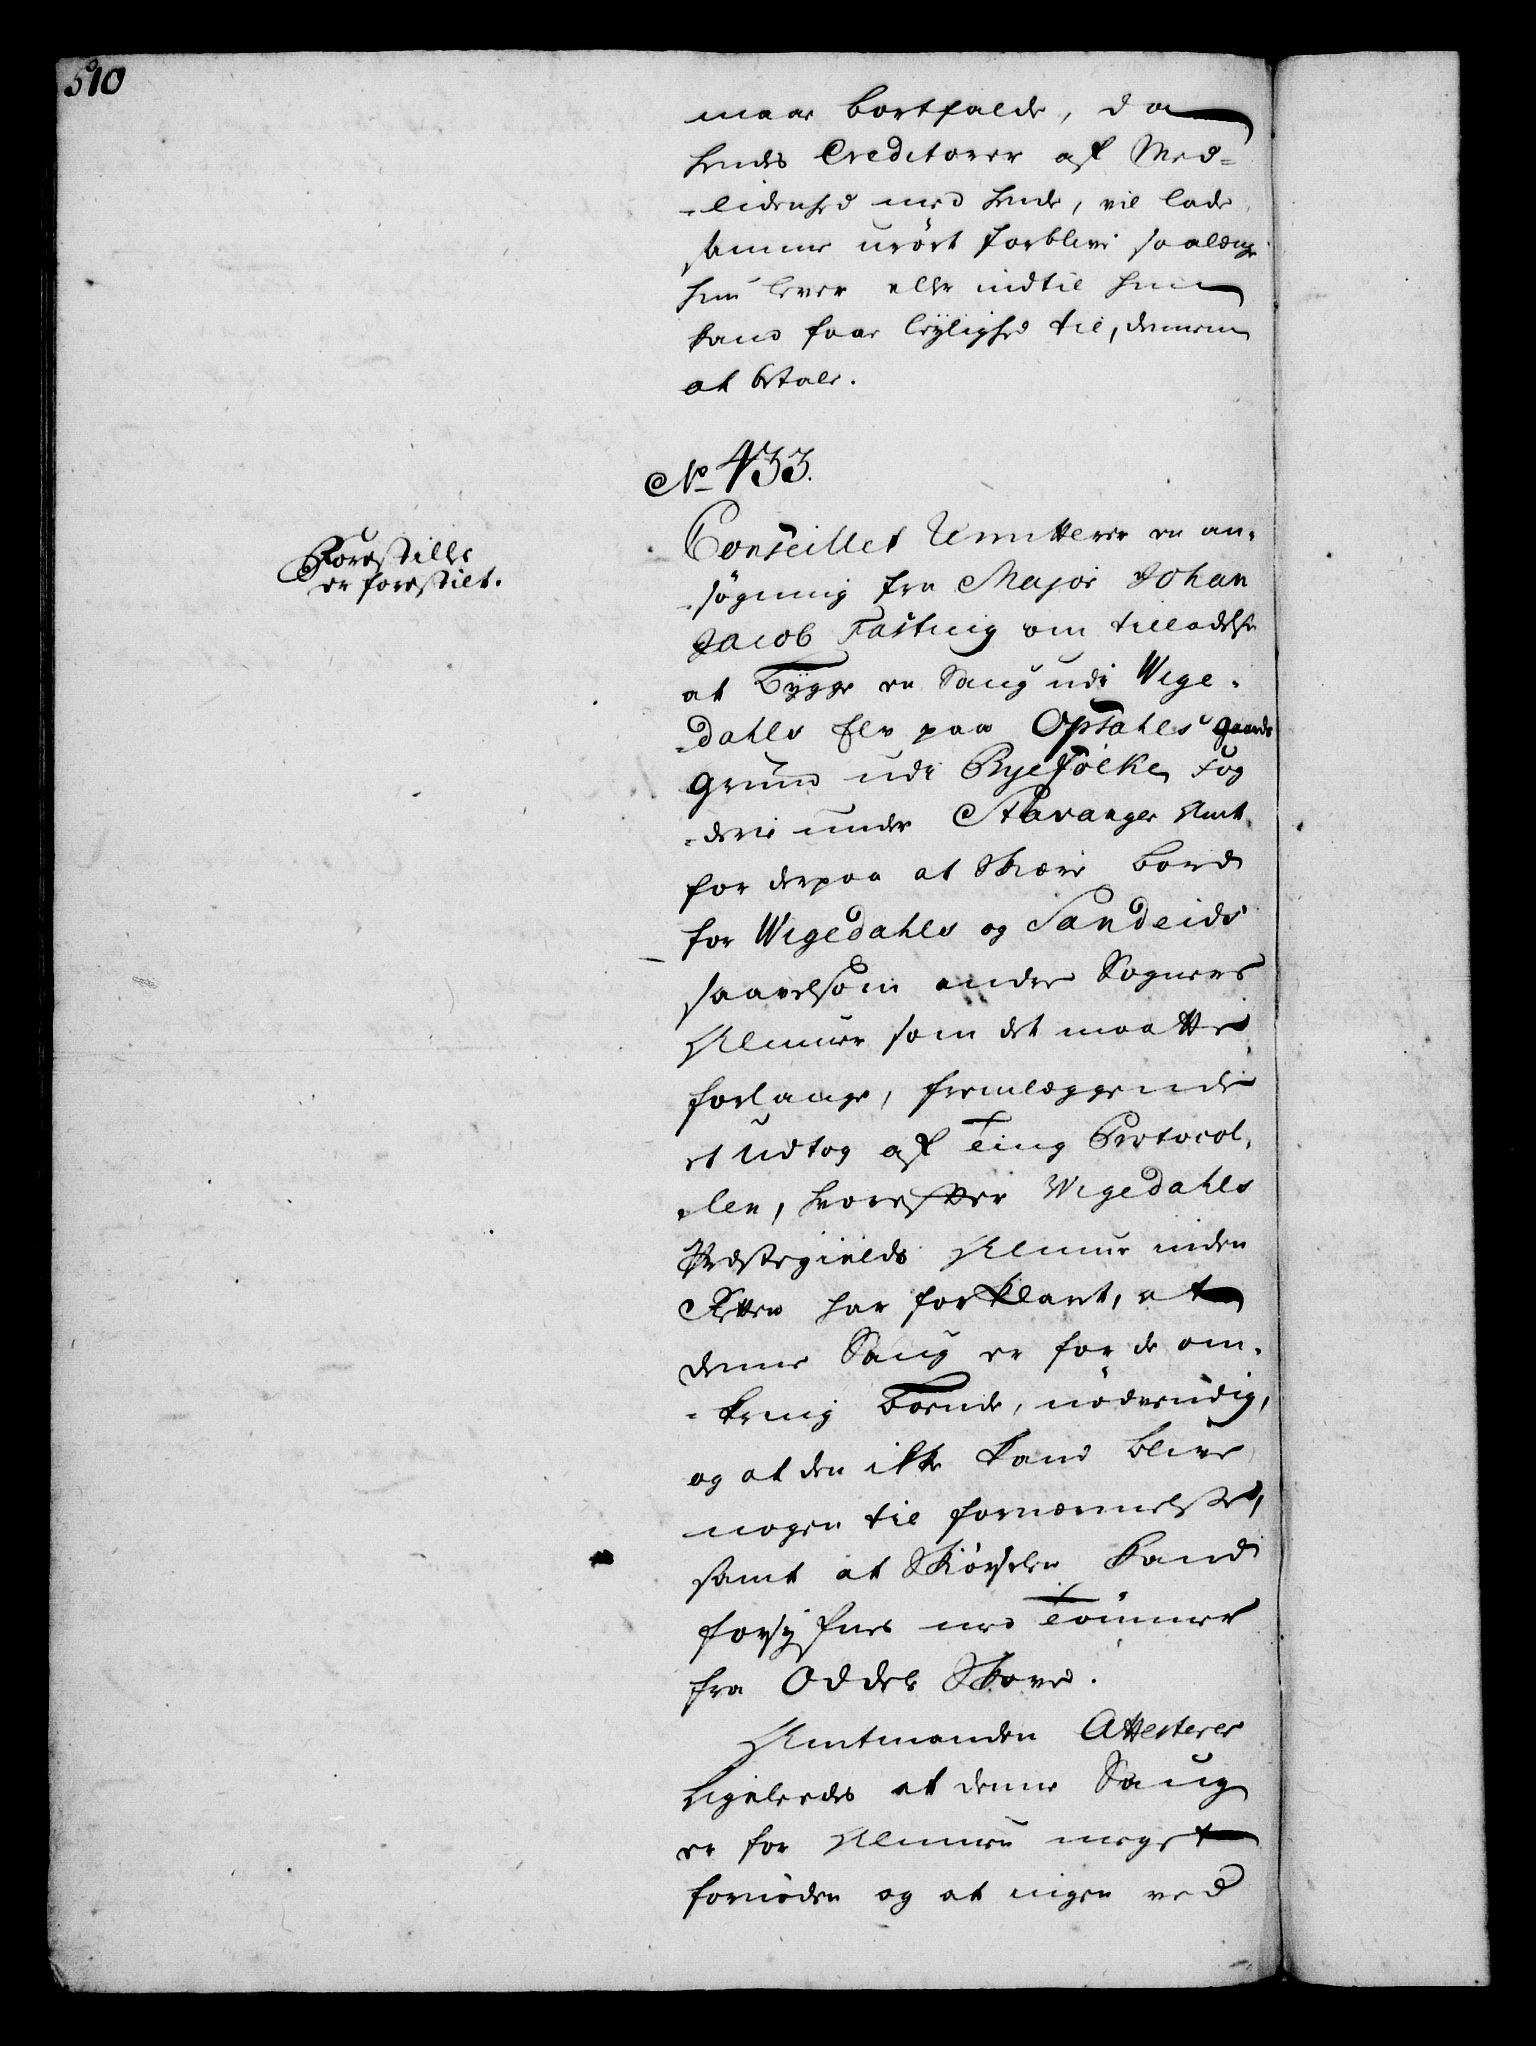 510
maae bortfalde, da
hendes Creditorer af Med-
-lidenhed med hende, vil lade
samme urört forblive saalænge
hun lever eller indtil hun
kand faae leylighed til, dennem
at betale.
No 433.
Forestilles
er forestilet.
Conseillet Remitterer en an-
-søgning fra Major Johan
Jacob Fasting om tilladelse
at Bygge en Saug udi Wige-
-dahls Elv paa Opsahls gaards
Grund udi Ryefölke Fog
-derie under Stavanger Amt,
for derpaa at skiære bord
for Wigedahls og Sandeids
saavelsom andre Sogners
Almue som det maatte
forlange, fremlæggende
et Udtog af Ting Protocol-
-len, hvorefter Wigedahls
Præstegields Almue inden
Retten har forklaret, at
denne Saug er for de om-
-kring boende, nödvendig,
og at den ikke kand blive
nogen til fornærmelse,
samt at Skörselen kand
forsynes med Tömmer
fra Oddels Skove.
Amtmanden Attesterer
ligeleedes at denne Saug
er for Almuen meget
fornöden og at ingen ved